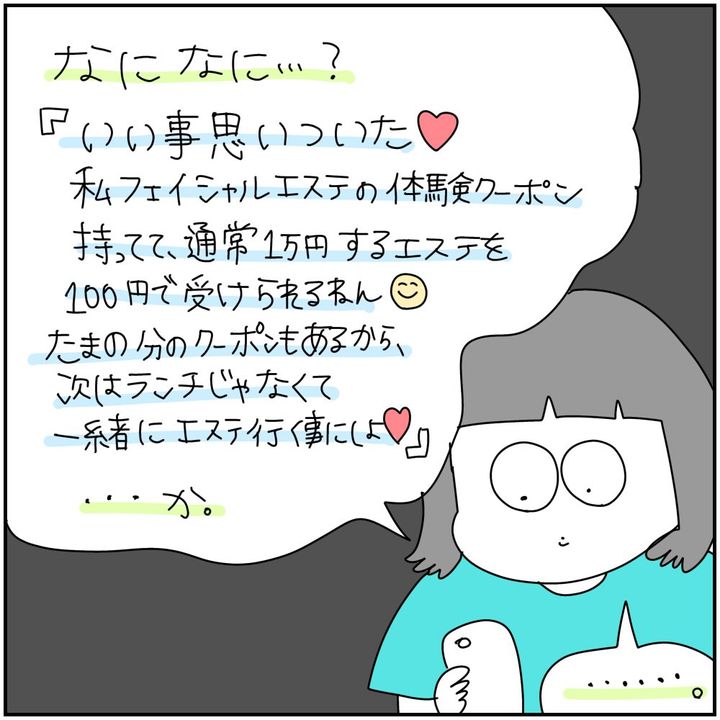 なになに…?
『いい事思いついた♥
私フェイシャルエステの体験クーポン
持ってて、通常1万円するエステを
100円で受けられるねん😊
たまの分のクーポンもあるから、
次はランチじゃなくて
一緒にエステ行く事にしよ♥』
・・・・か。
・・・・・・。